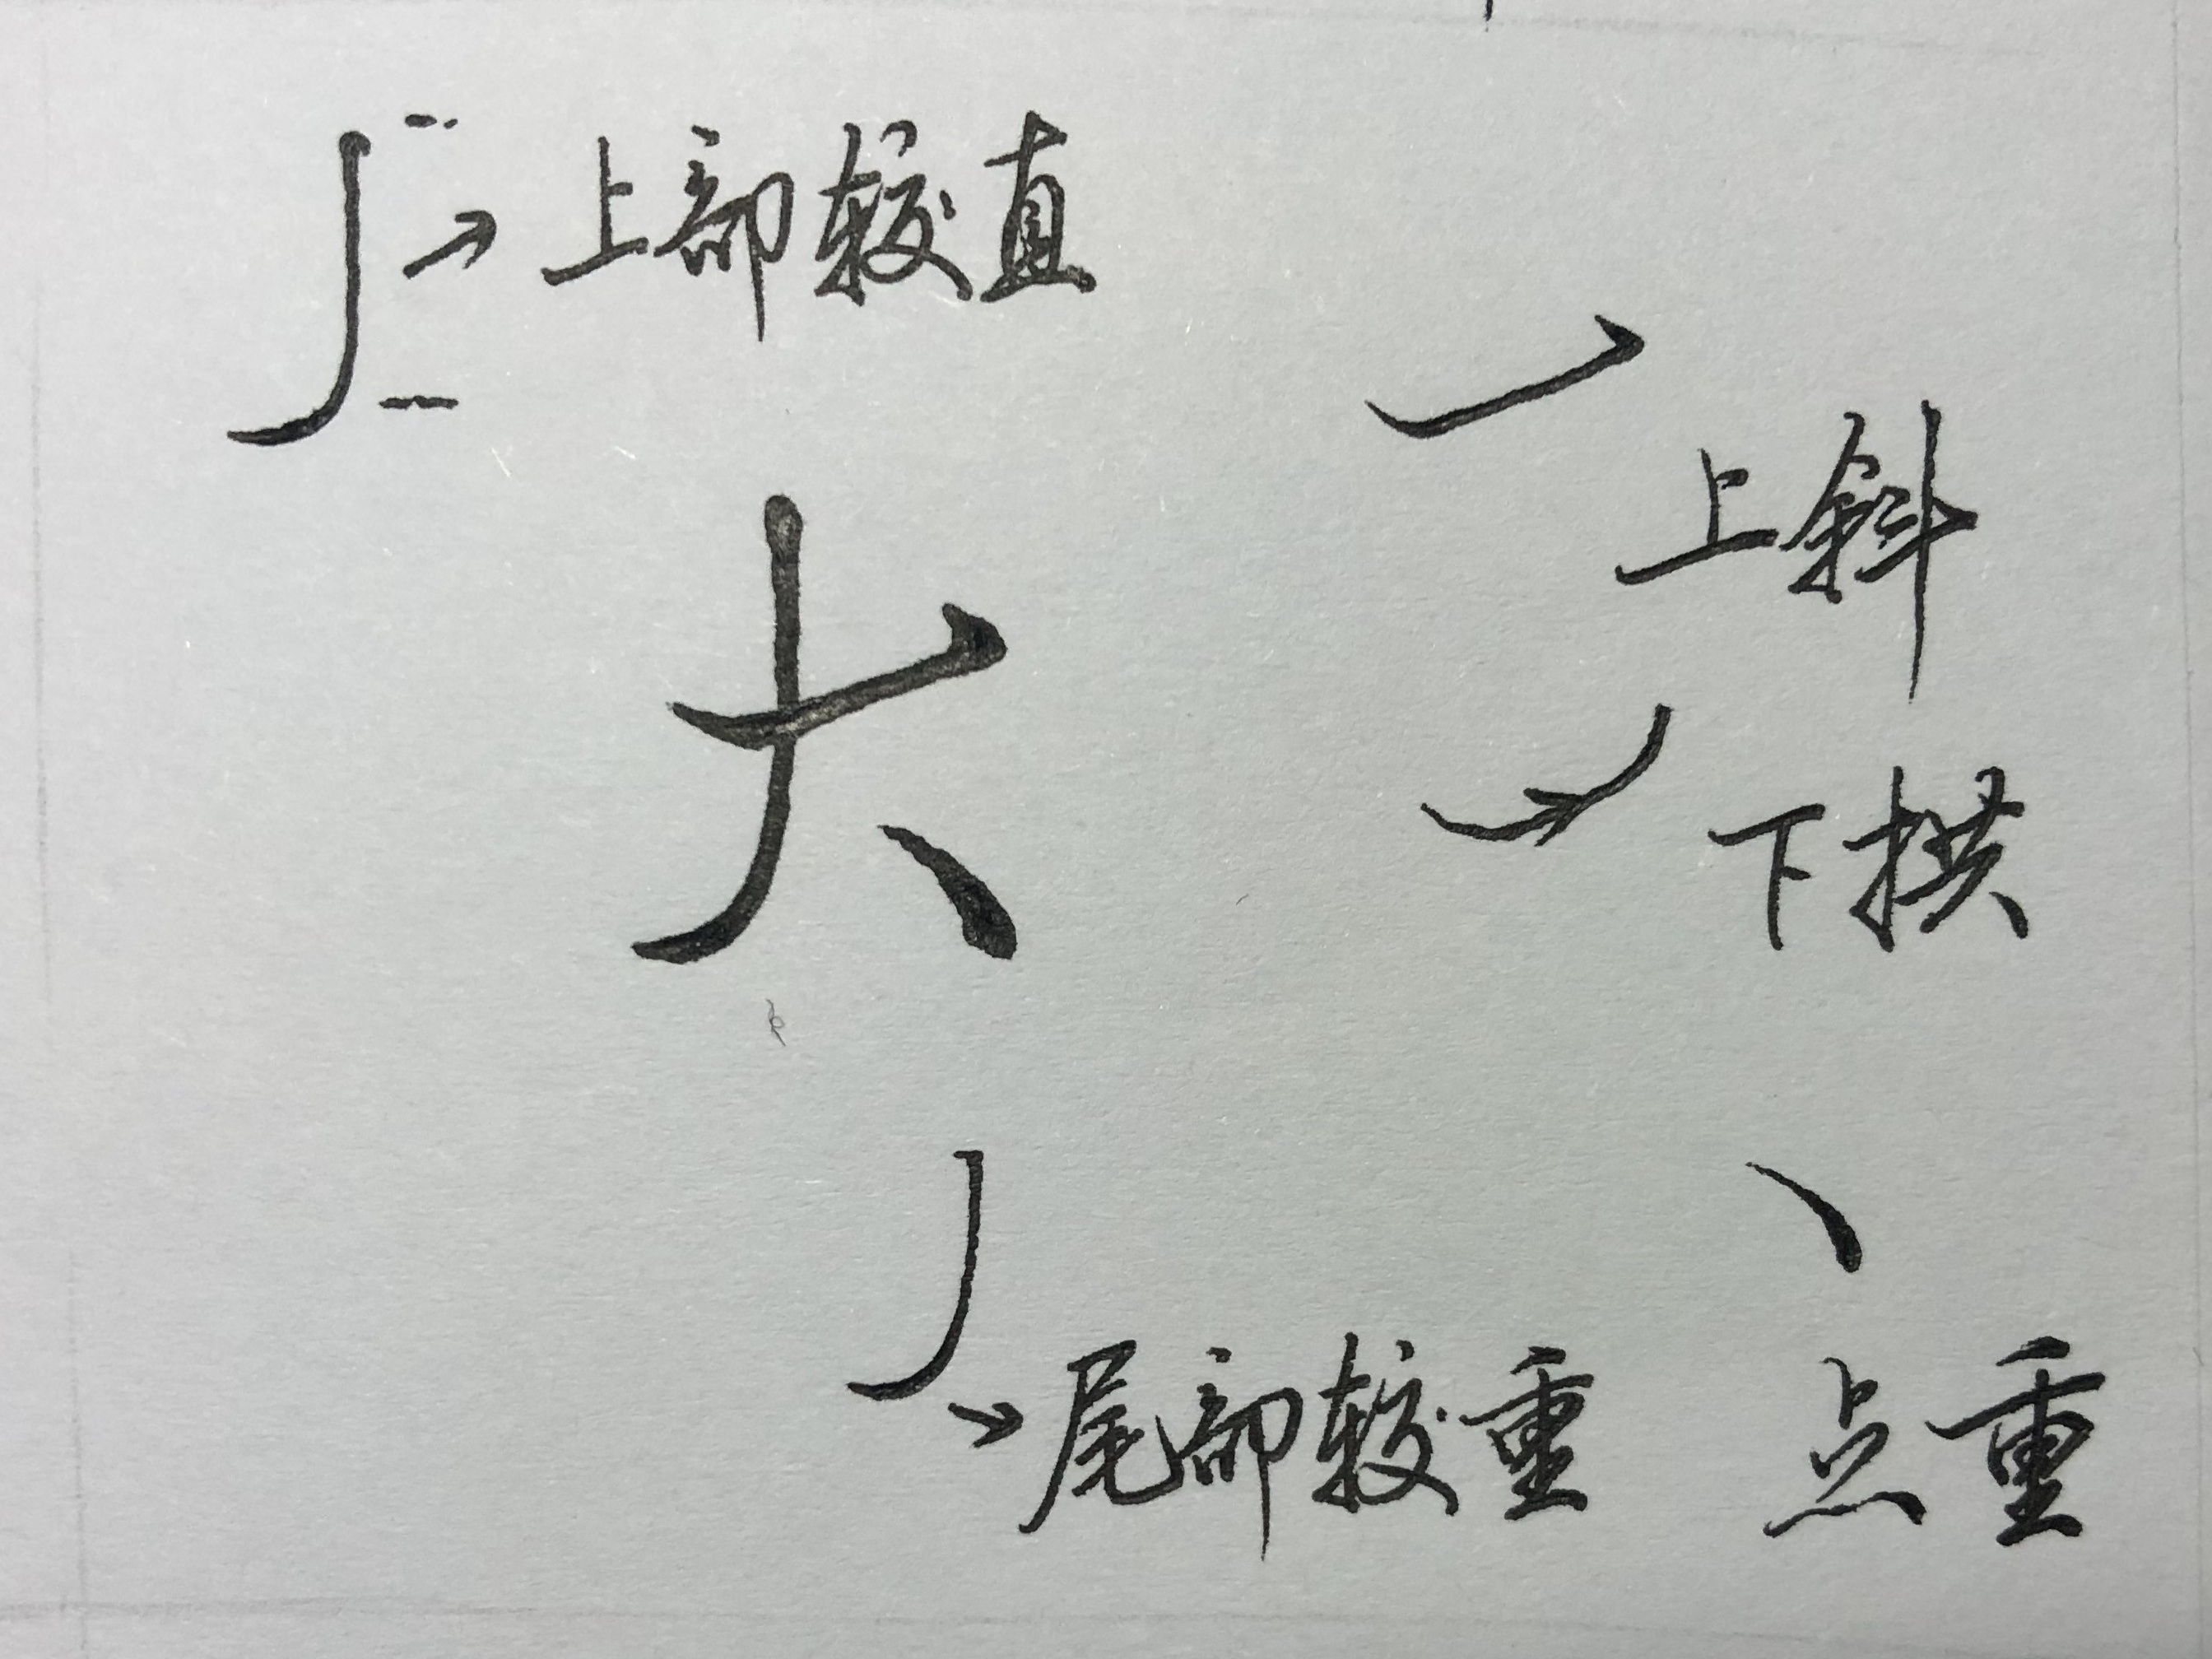 上部较直
上斜
大
下拱
尾部较重
点重